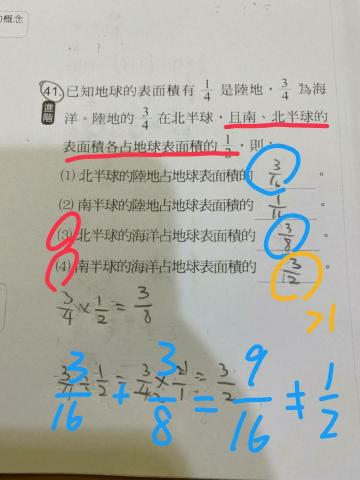 的概念
41. 已知地球的表面積有 1/4 是陸地,3/4 為海
進階 洋。陸地的 3/4 在北半球,且南、北半球的
表面積各占地球表面積的 1/2,則:
(1) 北半球的陸地占地球表面積的 3/16 。
(2) 南半球的陸地占地球表面積的 1/16 。
(3) 北半球的海洋占地球表面積的 3/8 。
(4) 南半球的海洋占地球表面積的 3/12 。
>1
3/4 × 1/2 = 3/8
3/4 ÷ 1/2 = 3/4 × 2/1 = 3/2
3/16 + 3/8 = 9/16 ≠ 1/2